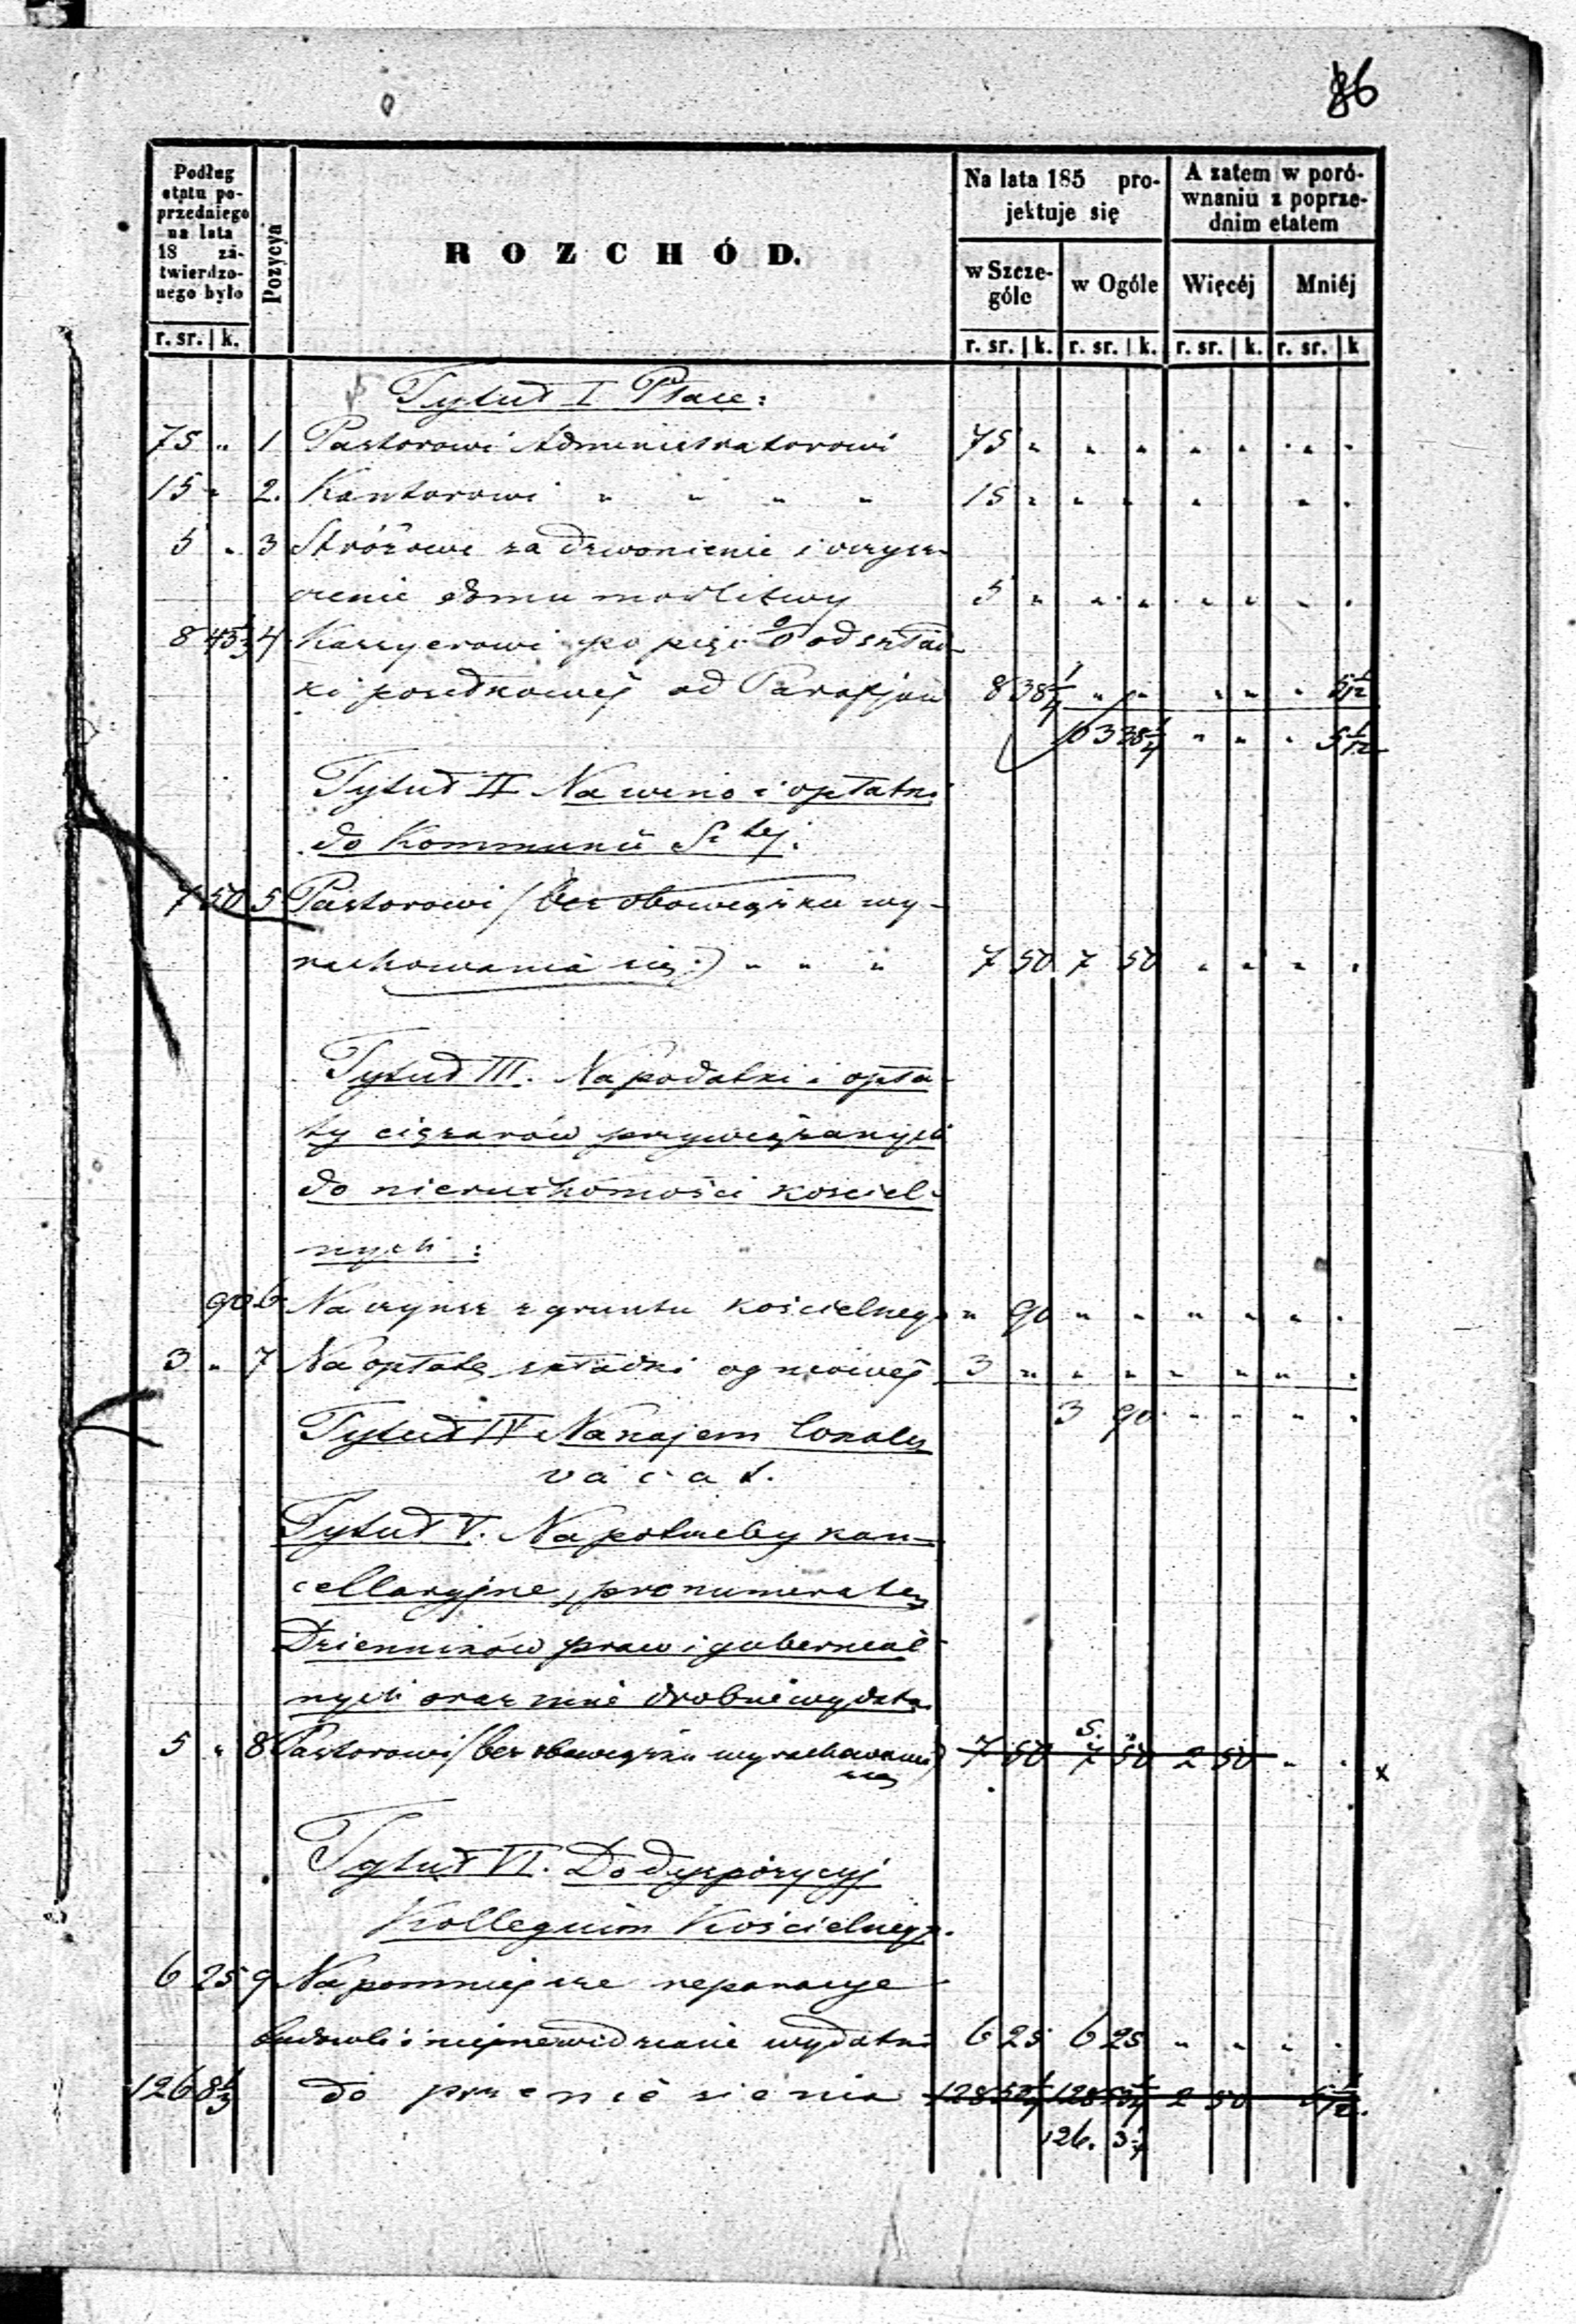 86
Podług etatu po- przedniego na lata 18 za- twierdzo- nego było
Pozycya
R O Z C H Ó D.
Na lata 185 pro- jektuje się
A zatem w poró- wnaniu z poprze- dnim etatem
w Szcze- góle
w Ogóle
Więcéj
Mniéj
r. sr. k. r. sr. k. r. sr. k. r. sr. k. r. sr. k
Tytuł I Płace:
75 " 1 Pastorowi Administratorowi 75 " " " " " " "
15 " 2. Kantorowi " " " " 15 " " " " " "
5 " 3 Stróżowi za dzwonienie i czysz-
czenie domu modlitwy 5 " " " " " " "
8 43 1/3 4 Kassyerowi po pięć % od skład-
ki posiłkowéj od Parafjan 8 38 1/4 " " " " " 5 1/12
103 38 1/4 " " " 5 1/12
Tytuł II Na wino i opłatki
do Kommunii Stej:
7 50 5 Pastorowi /bez obowiązku wy-
rachowania się:) " " " 7 50 7 50 " " " "
Tytuł III. Na podatki i opła-
ty ciężarów przywiązanych
do nieruchomości kościel-
nych:
90 6 Na czynsz z gruntu kościelnego " 90 " " " " " "
3 " 7 Na opłatę składki ogniowéj 3 " " " " " " "
3 90 " " " "
Tytuł IV Na najem lokalu
vacat.
Tytuł V. Na potrzeby kan-
cellaryjne, prenumeratę
Dzienników praw i gubernial-
nych oraz inne drobne wydatki
5 " 8 Pastorowi /bez obowiązku wyrachowania 7 50 7 50 2 50 " " x
się
5. "
Tytuł VI. Do dyspozycyj
Kollegium Kościelnego.
6 25 9 Na pomniejsze reparacye
budowli i nieprzewidziane wydatki 6 25 6 25 " " " "
126 8 1/3 do przeniesienia 128 53 1/4 128 53 1/4 2 50 5 1/12.
126. 3 1/4